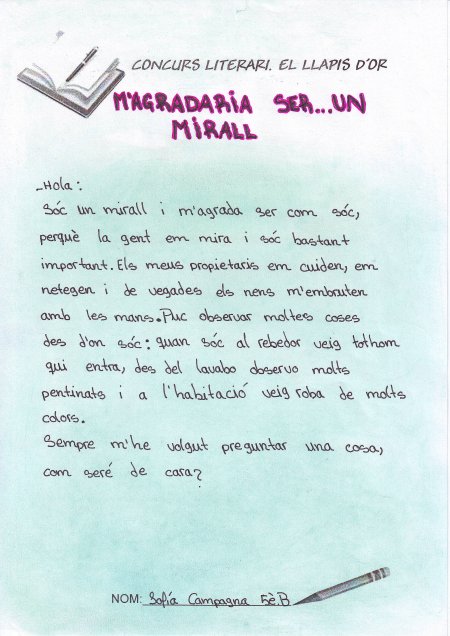 CONCURS LITERARI. EL LLAPIS D'OR
M'AGRADARIA SER...UN
MIRALL
-Hola:
Sóc un mirall i m'agrada ser com sóc,
perquè la gent em mira i sóc bastant
important. Els meus propietaris em cuiden, em
netegen i de vegades els nens m'embruten
amb les mans. Puc observar moltes coses
des d'on sóc: quan sóc al rebedor veig tothom
qui entra, des del lavabo observo molts
pentinats i a l'habitació veig roba de molts
colors.
Sempre m'he volgut preguntar una cosa,
com seré de cara?
NOM: Sofía Campagna 5è.B